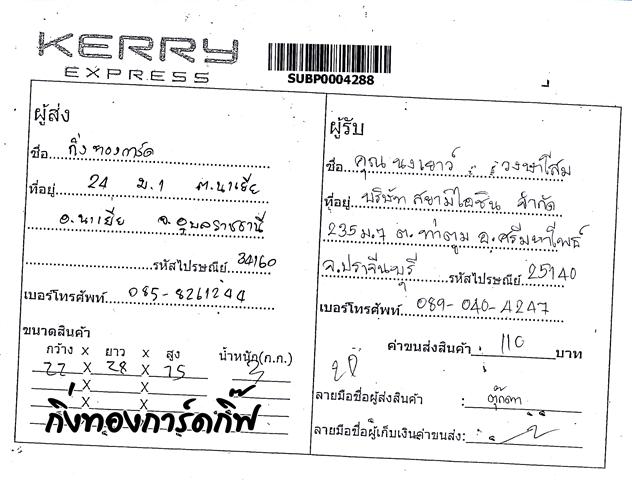 KERRY
EXPRESS
SUBP0004288
ผู้ส่ง
ชื่อ กิ่งทองการ์ด
ที่อยู่ 24 ม.1 ต.นาเยีย
อ.นาเยีย จ.อุบลราชธานี
รหัสไปรษณีย์ 34160
เบอร์โทรศัพท์ 085-8261244
ขนาดสินค้า
กว้าง X ยาว X สูง น้ำหนัก(ก.ก.)
22 X 28 X 25 3
X X
X X
กิ่งทองการ์ดกิ๊ฟ
ผู้รับ
ชื่อ คุณ นงเยาว์ วงษาโสม
ที่อยู่ บริษัท สยามไอซิน จำกัด
235 ม.7 ต.ท่าตูม อ.ศรีมหาโพธ์
จ.ปราจีนบุรี รหัสไปรษณีย์ 25140
เบอร์โทรศัพท์ 089-040-4247
ค่าขนส่งสินค้า 110 บาท
ลายมือชื่อผู้ส่งสินค้า : ตุ๊กตา
ลายมือชื่อผู้เก็บเงินค่าขนส่ง: